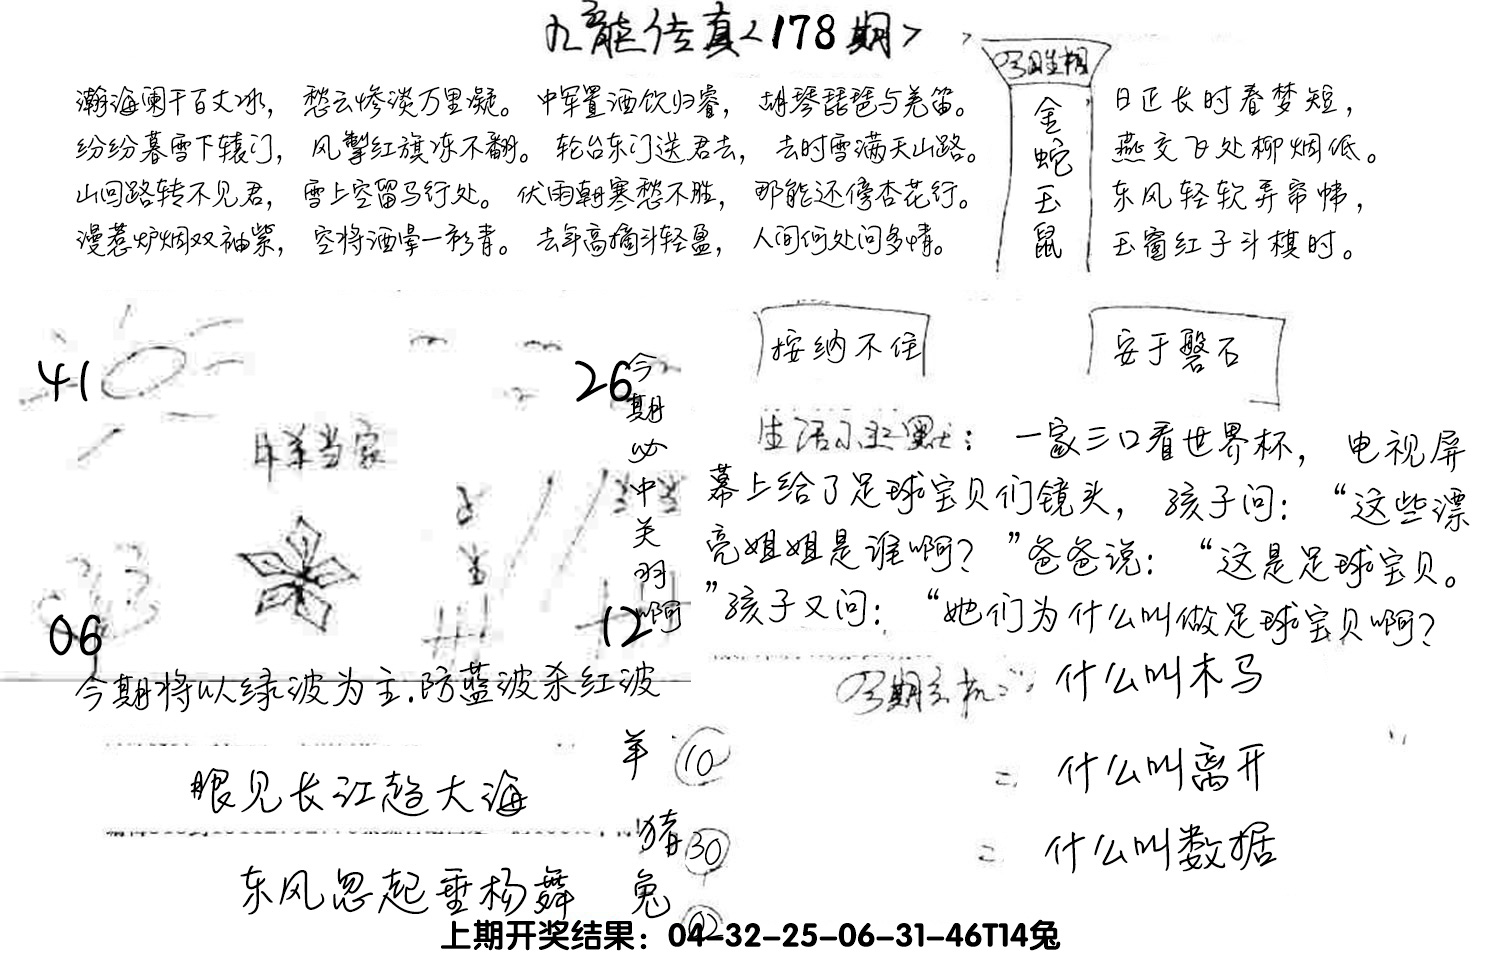 九龍传真<178期>
瀚海阑干百丈冰， 愁云惨淡万里凝。 中军置酒饮归客， 胡琴琵琶与羌笛。
纷纷暮雪下辕门， 风掣红旗冻不翻。 轮台东门送君去， 去时雪满天山路。
山回路转不见君， 雪上空留马行处。 伏雨朝寒愁不胜， 那能还傍杏花行。
漫惹炉烟双袖紫， 空将酒晕一衫青。 去年高摘斗轻盈， 人间何处问多情。
今期生相
金蛇玉鼠
日正长时春梦短，
燕交飞处柳烟低。
东风轻软弄帘帏，
玉窗红子斗棋时。
41
26
当家
06
12
今期必中关羽啊
按纳不住
安于磐石
生活幽默： 一家三口看世界杯， 电视屏
幕上给了足球宝贝们镜头， 孩子问： “这些漂
亮姐姐是谁啊？ ”爸爸说： “这是足球宝贝。
”孩子又问： “她们为什么叫做足球宝贝啊？
今期将以绿波为主.防蓝波杀红波
今期玄机： 什么叫木马
= 什么叫离开
= 什么叫数据
眼见长江趋大海
东风忽起垂杨舞
羊 10
猪 30
兔 02
上期开奖结果：04-32-25-06-31-46T14兔